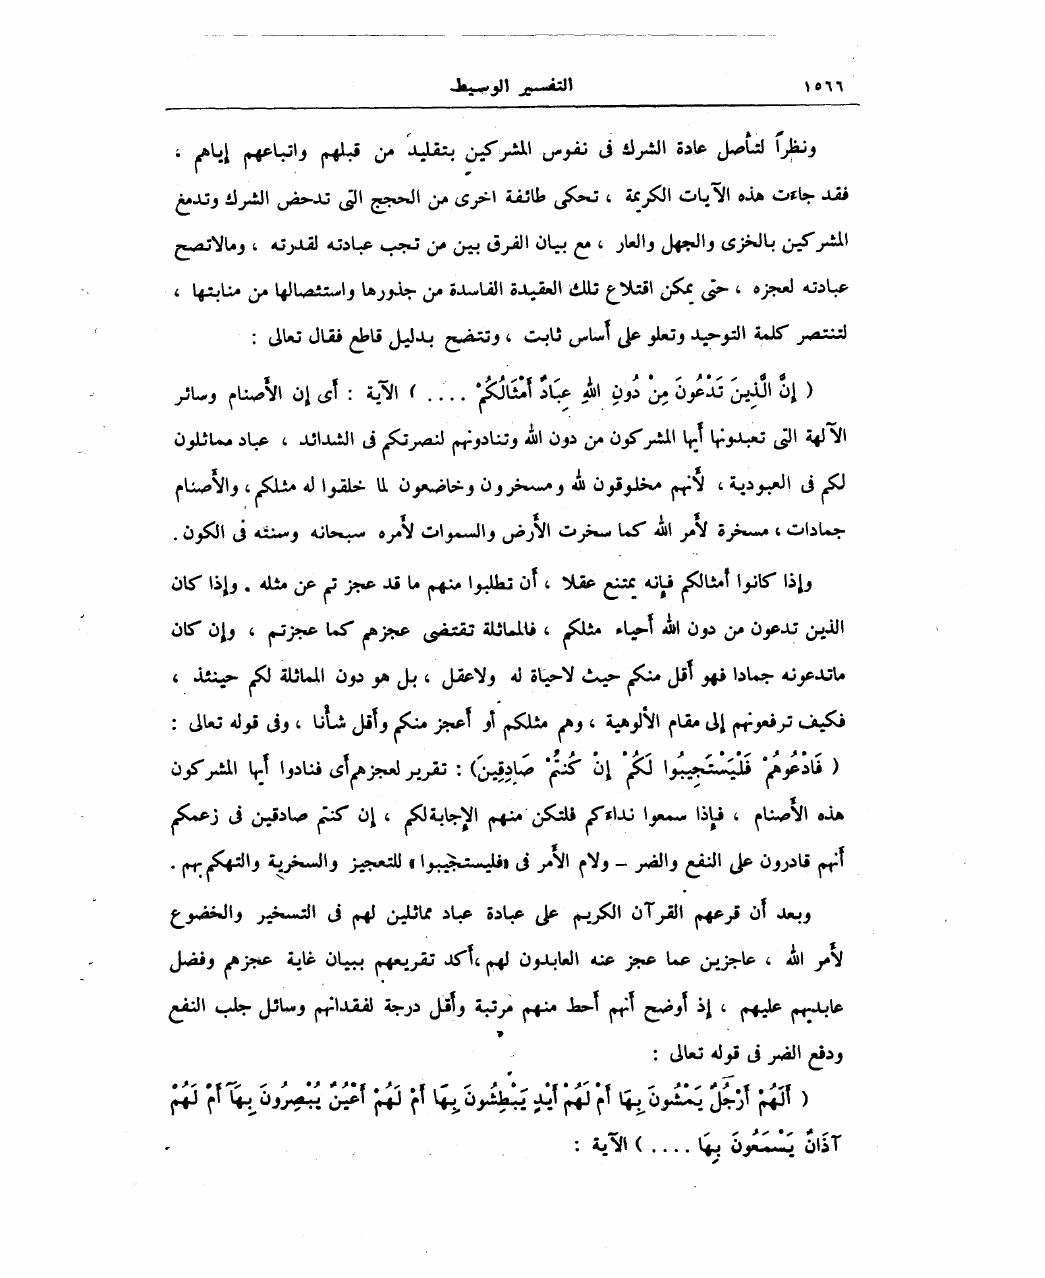 ١٥٦٦ التفسير الوسيط
ونظراً لتأصل عادة الشرك فى نفوس المشركين بتقليد من قبلهم واتباعهم إياهم ،
فقد جاءت هذه الآيات الكريمة ، تحكى طائفة اخرى من الحجج التى تدحض الشرك وتدمغ
المشركين بالخزى والجهل والعار ، مع بيان الفرق بين من تجب عبادته لقدرته ، ومالاتصح
عبادته لعجزه ، حتى يمكن اقتلاع تلك العقيدة الفاسدة من جذورها واستئصالها من منابتها ،
لتنتصر كلمة التوحيد وتعلو على أساس ثابت ، وتتضح بدليل قاطع فقال تعالى :
( إِنَّ الَّذِينَ تَدْعُونَ مِنْ دُونِ اللهِ عِبَادٌ أَمْثَالُكُمْ .... ) الآية : أى إن الأصنام وسائر
الآلهة التى تعبدونها أيها المشركون من دون الله وتنادونهم لنصرتكم فى الشدائد ، عباد مماثلون
لكم فى العبودية ، لأنهم مخلوقون لله ومسخرون وخاضعون لما خلقوا له مثلكم ، والأصنام
جمادات ، مسخرة لأمر الله كما سخرت الأرض والسموات لأمره سبحانه وسننه فى الكون .
وإذا كانوا أمثالكم فإنه يمتنع عقلا ، أن تطلبوا منهم ما قد عجز تم عن مثله . وإذا كان
الذين تدعون من دون الله أحياء مثلكم ، فالمماثلة تقتضى عجزهم كما عجزتم ، وإن كان
ماتدعونه جمادا فهو أقل منكم حيث لاحياة له ولاعقل ، بل هو دون المماثلة لكم حينئذ ،
فكيف ترفعونهم إلى مقام الألوهية ، وهم مثلكم أو أعجز منكم وأقل شأنا ، وفى قوله تعالى :
( فَادْعُوهُمْ فَلْيَسْتَجِيبُوا لَكُمْ إِنْ كُنتُمْ صَادِقِينَ) : تقرير لعجزهم أى فنادوا أيها المشركون
هذه الأصنام ، فإذا سمعوا نداءكم فلتكن منهم الإجابة لكم ، إن كنتم صادقين فى زعمكم
أنهم قادرون على النفع والضر - ولام الأمر فى «فليستجيبوا» للتعجيز والسخرية والتهكم بهم .
وبعد أن قرعهم القرآن الكريم على عبادة عباد مماثلين لهم فى التسخير والخضوع
لأمر الله ، عاجزين عما عجز عنه العابدون لهم ،أكد تقريعهم ببيان غاية عجزهم وفضل
عابديهم عليهم ، إذ أوضح أنهم أحط منهم مرتبة وأقل درجة لفقدانهم وسائل جلب النفع
ودفع الضر فى قوله تعالى :
( أَلَهُمْ أَرْجُلٌ يَمْشُونَ بِهَا أَمْ لَهُمْ أَيْدٍ يَبْطِشُونَ بِهَا أَمْ لَهُمْ أَعْيُنٌ يُبْصِرُونَ بِهَا أَمْ لَهُمْ
آذَانٌ يَسْمَعُونَ بِهَا .... ) الآية :